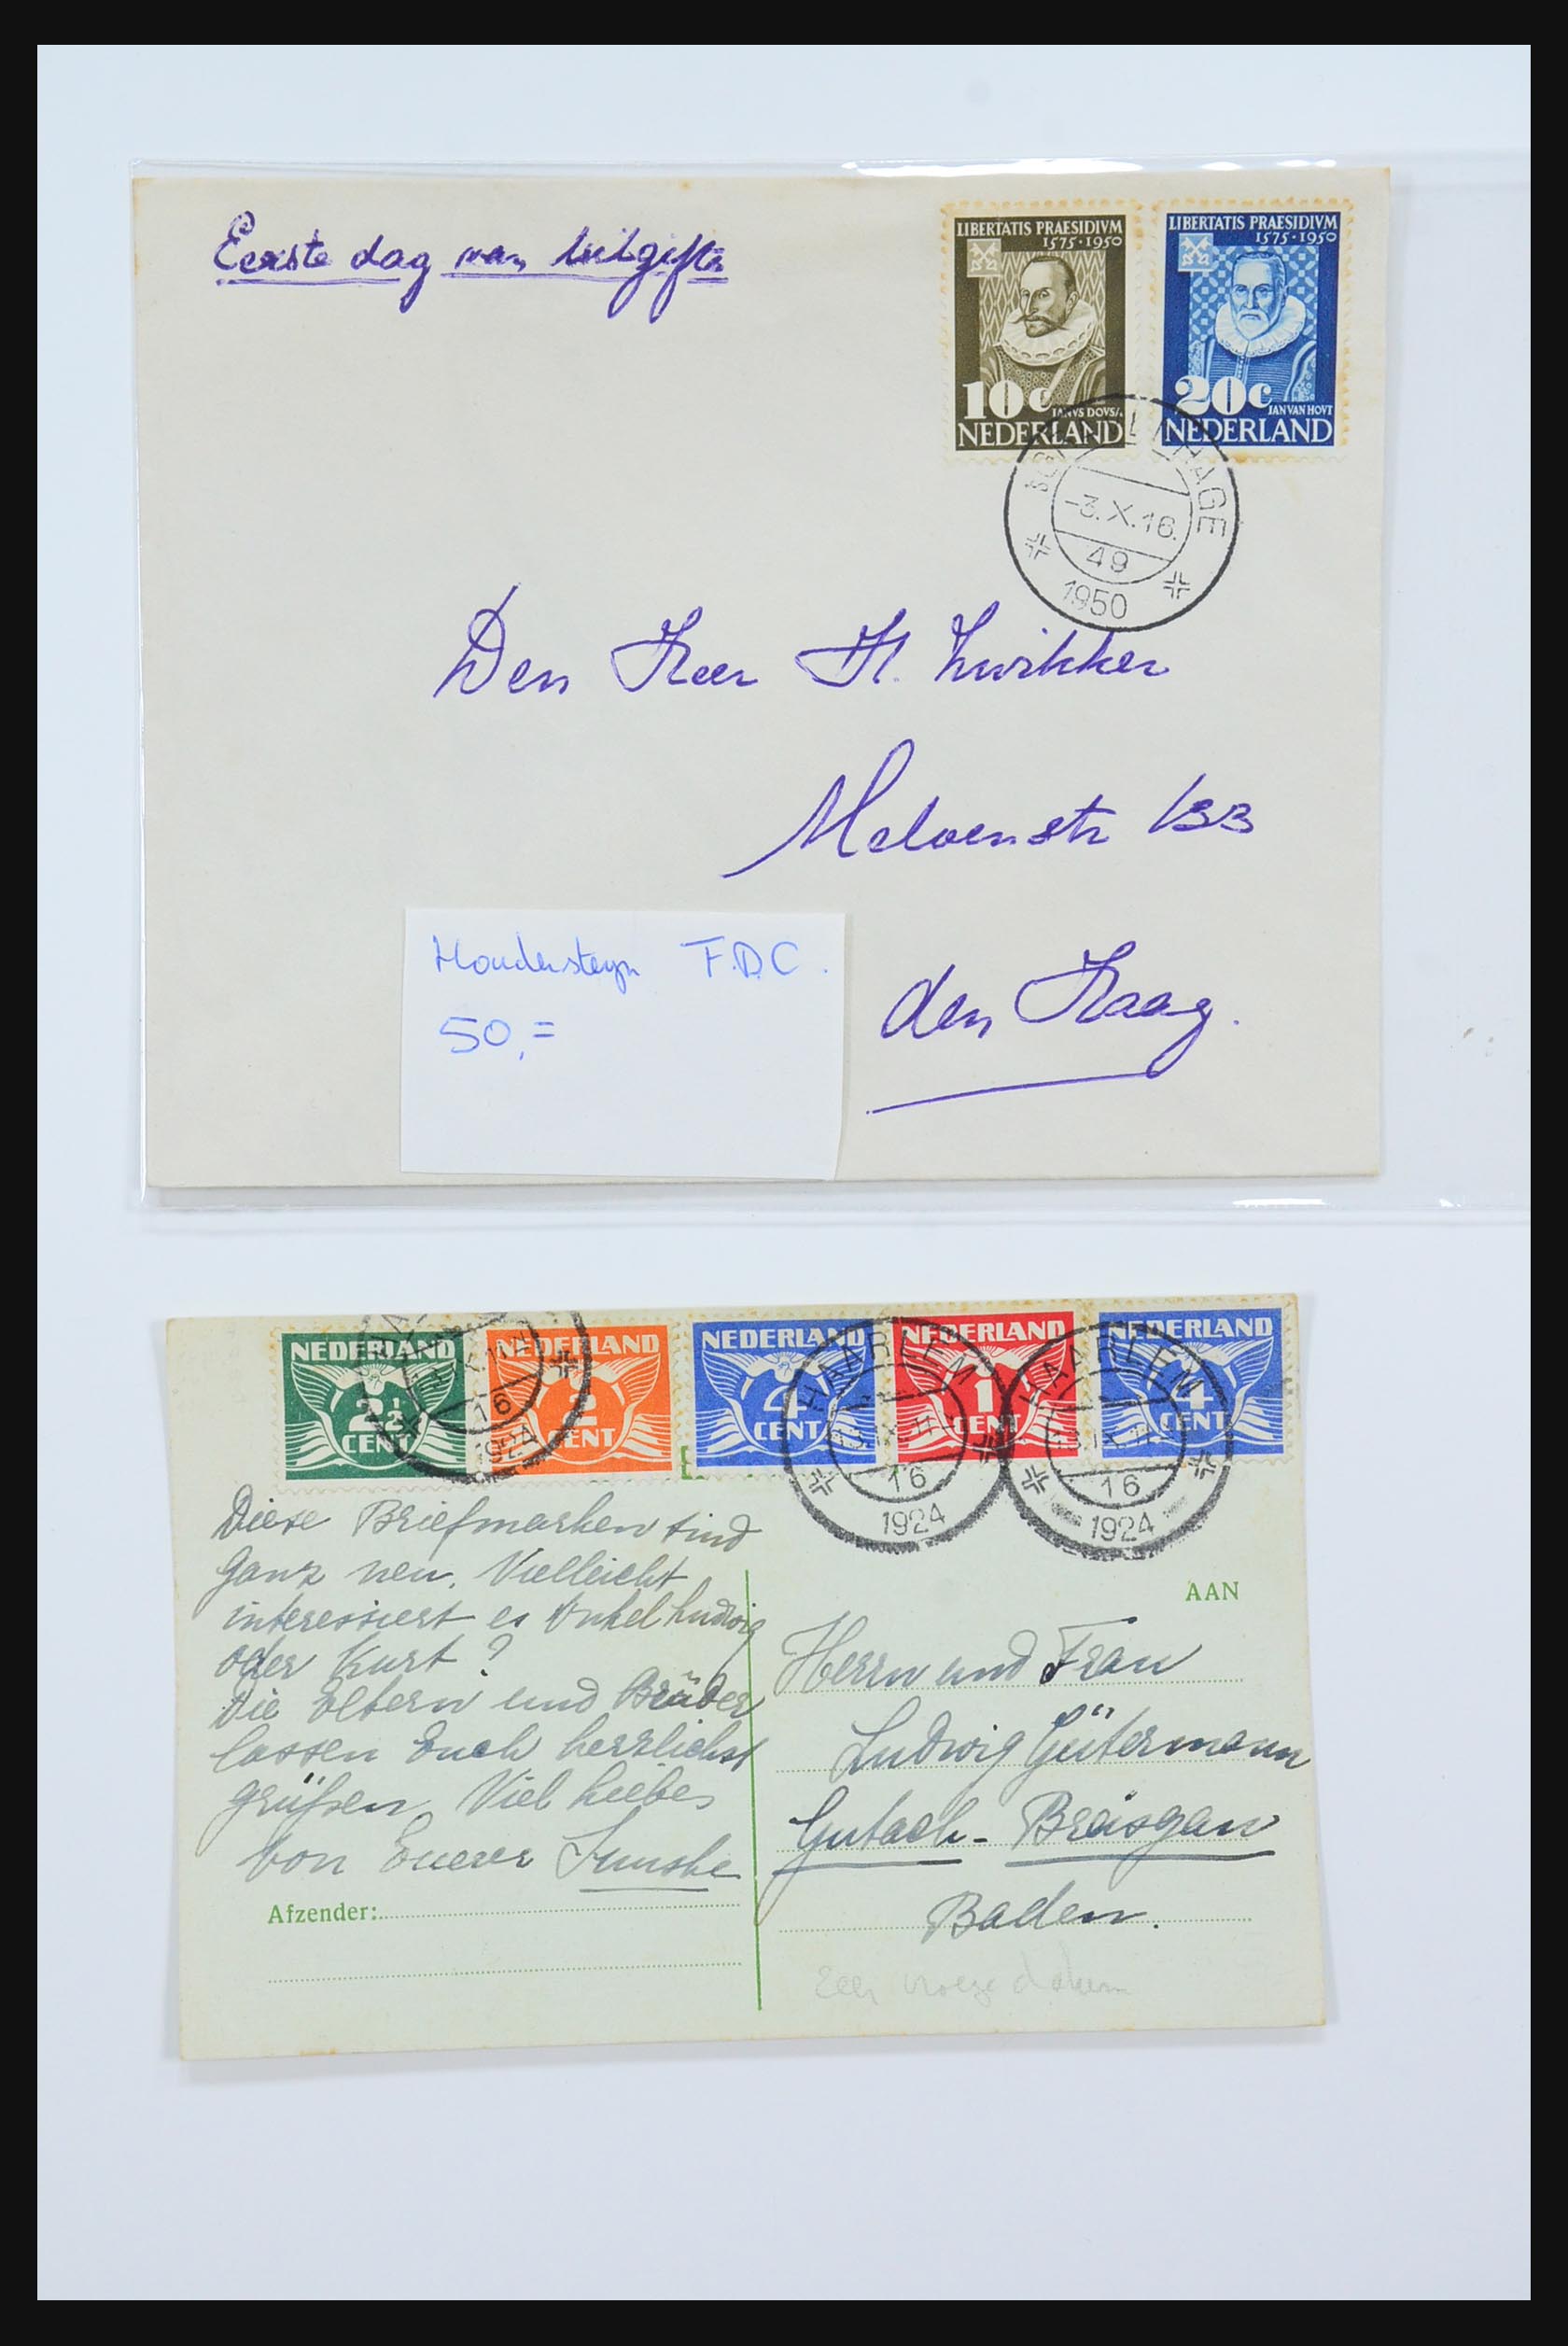 Eerste dag van uitgifte
LIBERTATIS PRAESIDIVM
1575·1950
10c
IANVS DOVSA
NEDERLAND
LIBERTATIS PRAESIDIVM
1575·1950
20c
JAN VAN HOVT
NEDERLAND
HAGE
-3.X.16.
49
1950
Den Heer H. Zwikker
Meloenstr 133
den Haag.
F.D.C.
50,=
NEDERLAND
2½
CENT
NEDERLAND
2
CENT
NEDERLAND
4
CENT
NEDERLAND
1
CENT
NEDERLAND
4
CENT
16
1924
HAARLEM
16
1924
HAARLEM
16
1924
Diese Briefmarken sind
ganz neu. Vielleicht
interessiert es Onkel Ludwig
oder Kurt?
Die Eltern und Brüder
lassen Euch herzlichst
grüßen. Viel Liebes
von Euerer
Afzender:
AAN
Herrn und Frau
Ludwig Gütermann
Gutach - Breisgau
Baden.